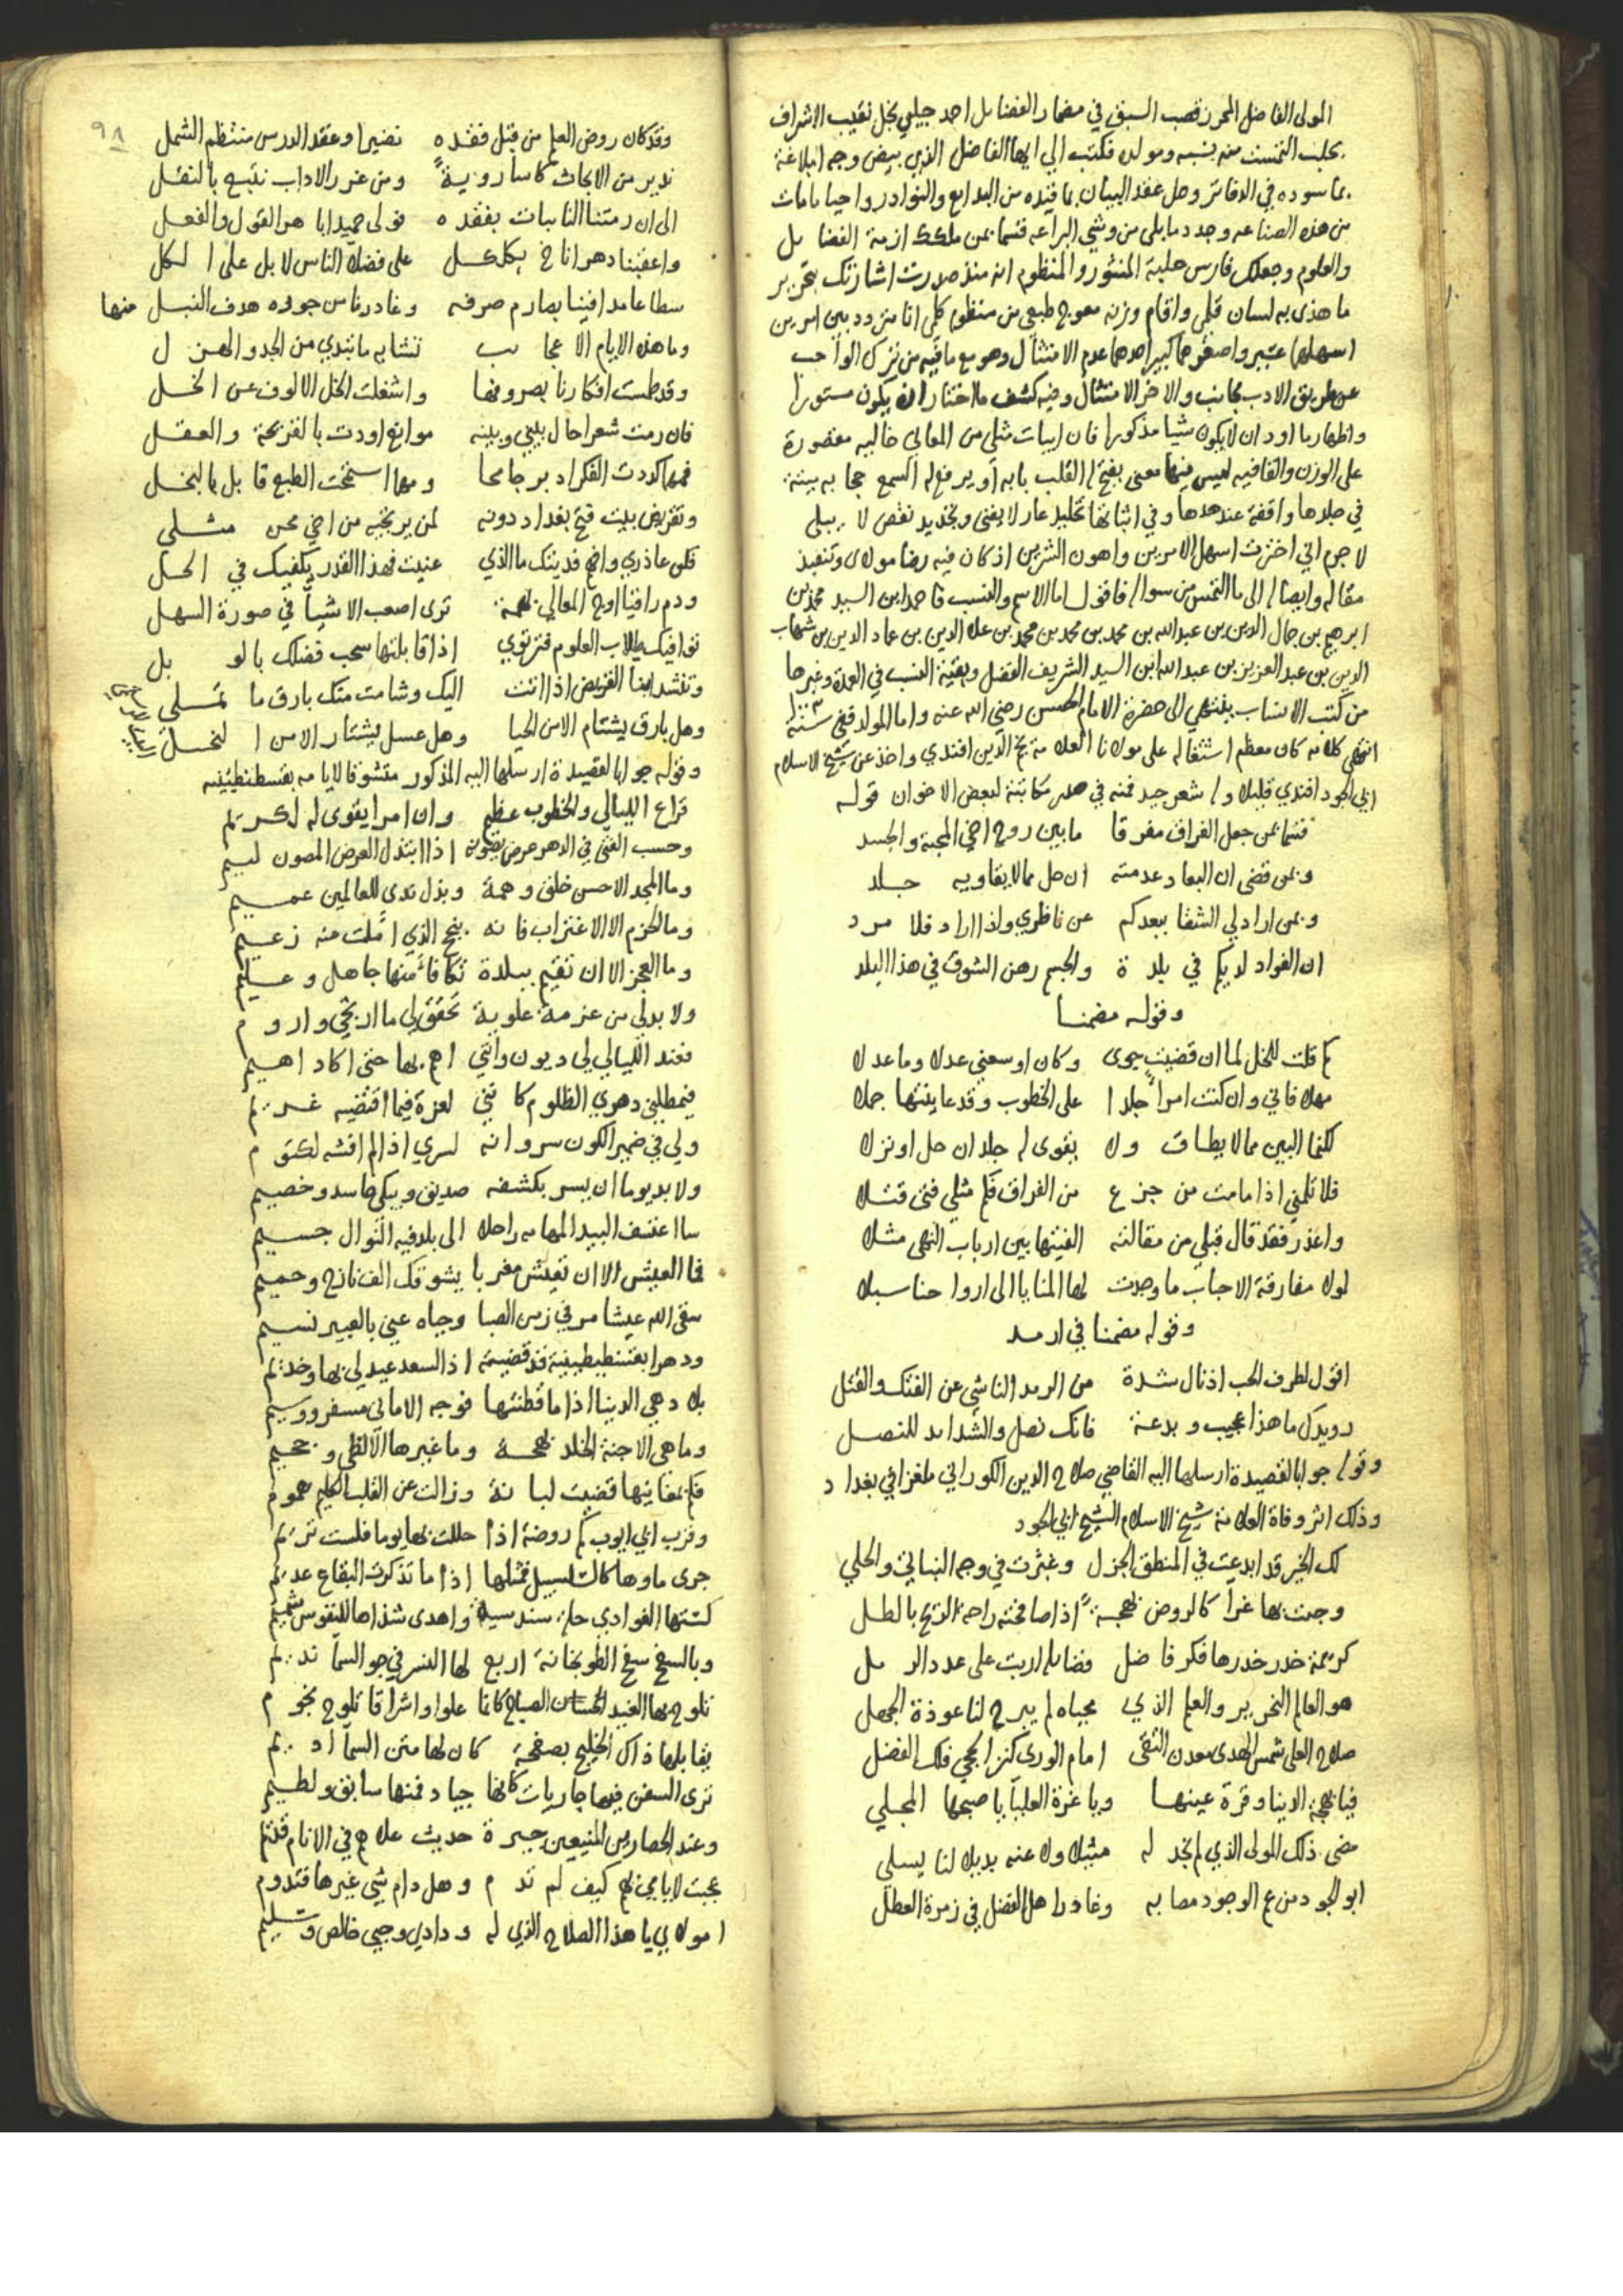 المولى الفاضل المحرز قصب السبق في مضمار الفضايل احمد جلبي نجل نقيب الاشراف
بحلب التمست منه نسبه ومولده فكتب الي ايها الفاضل الذي بيض وجه البلاغة
بما سوده في الدفاتر وحل عقد البيان بما قيده من البدايع والنوادر واحيا ما مات
من هذه الصناعه وجدد ما بلى من وشي البراعه قسما بمن ملكك ازمة الفضايل
والعلوم وجعلك فارس حلبة المنثور والمنظوم انه منذ صدرت اشارتك بتحرير
ما هذى به لسان قلمي واقام وزنه معوج طبعي من منظوم كلمي انا متردد بين امرين
اسهلهما عسير واصغرهما كبير احدهما عدم الامتثال وهو مع ما فيه من ترك الواجب
عن طريق الادب مجانب والاخر الامتثال وفيه كشف ما اختار ان يكون مستورا
واظهار ما اود ان لا يكون شيا مذكورا فان ابيات مثلي من المعالي خاليه مقصورة
على الوزن والقافيه ليس فيها معنى يفتح له القلب بابه او يرفع له السمع حجابه بيننة
في جلدها واقفة عند حدها وفي اثباتها تخليد عار لا يفنى وتجديد نقص لا يبلى
لا جرم اني اخترت اسهل الامرين واهون الشرين اذ كان فيه رضا مولاي وتنفيذ
مقاله وايصاله الى ما التمس من سواله فاقول اما الاسم والنسب فاحمد ابن السيد محمد بن
ابرهيم بن جمال الدين بن عبد الله بن محمد بن محمد بن محمد بن علاء الدين بن عماد الدين بن شهاب
الدين بن عبد العزيز بن عبد الله ابن السيد الشريف الفضل وبقية النسب في العمدة وغيرها
من كتب الانساب ينتهي الى حضرة الامام الحسن رضي الله عنه واما المولد ففي سنة ١٠٠٣
انتهى كلامه كان معظم اشتغاله على مولانا العلامة نجم الدين افندي واخذ عن شيخ الاسلام
ابي الجود افندي قليلا وله شعر جيد فمنه في صدر مكاتبة لبعض الاخوان قوله
قسما بمن جعل الفراق مفرقا ما بين روح اخي المحبة والجسد
وبمن قضى ان البعاد عدمته ان حل مما لا يقاويه جلد
وبمن اراد لي الشقا ببعدكم عن ناظري واذا اراد فلا مرد
ان الفواد لديكم في بلدة والجسم رهن الشوق في هذا البلد
وقوله مضمنا
كم قلت للخل لما ان قضيت جوى وكان اوسعني عدلا وما عدلا
مهلا فاني وان كنت امرأ جلدا على الخطوب وقد عاينتها جملا
لكنما البين مما لا يطاق ولا يقوى له جلد ان حل او نزلا
فلا تلمني اذا ما مت من جزع من الفراق فكم مثلي فتى قتلا
واعذر فقد قال قبلي من مقالته الفيتها بين ارباب النهى مثلا
لولا مفارقة الاحباب ما وجدت لها المنايا الى ارواحنا سبلا
وقوله مضمنا في ارمد
اقول لطرف الحب اذ نال شدة من الرمد الناشي عن الفتك والقتل
رويدك ما هذا عجيب وبدعة فانك نصل والشدايد للنصل
وقوله جوابا لقصيدة ارسلها اليه القاضي صلاح الدين الكوراني ملغزا في بغداد
وذلك اثر وفاة العلامة شيخ الاسلام الشيخ ابي الجود
لك الخير قد ابدعت في المنطق الجزل وغبرت في وجه النباتي والحلي
وجئت بها غرا كالروض بهجة اذا صافحته راحة الريح بالطل
كريمة خدر خدرها فكر فاضل فضايله اربت على عدد الرمل
هو العالم النحرير والعلم الذي محياه لم يبرح لنا عوذة الجهل
صلاح العلى شمس الهدى معدن التقى امام الورى كنز الحجى فلك الفضل
فيا بهجة الدنيا وقرة عينها ويا غرة العليا يا صبحها المجلي
مضى ذلك المولى الذي لم نجد له مثيلا ولا عنه بديلا لنا يسلي
ابو الجود من عم الوجود مصابه وغادر اهل الفضل في زمرة العطل
٩٨
وقد كان روض العلم من قبل فقده نضيرا وعقد الدرس منتظم الشمل
ندير من الابحاث كاسا روية ومن غرر الاداب نتبع بالنقل
الى ان رمتنا النايبات بفقده فولى حميدا باهر القول والفعل
واعقبنا دهر اناخ بكلكل على فضلاء الناس لا بل على الكل
سطا عامدا فينا بصارم صرفه وغادرنا من جوره هدف النبل منها
وما هذه الايام الا عجايب تشابه ما تبدي من الجد والهزل
وقد طمست افكارنا بصروفها واشغلت الخل الالوف عن الخل
فان رمت شعرا حال بيني وبينه موانع اودت بالقريحة والعقل
فمهما كددت الفكر ادبر جامحا ومهما استمحت الطبع قابل بالبخل
وتقريض بيت فتح بغداد دونه لمن يرتجيه من اخي محن مثلي
فكن عاذري وافهم فديتك ما الذي عنيت فهذا القدر يكفيك في الحل
ودم راقيا اوج المعالي بهمة ترى اصعب الاشياء في صورة السهل
توافيك طلاب العلوم فترتوي اذا قابلتها سحب فضلك بالوبل
وتنشد ابنا القريض اذا انثت اليك وشامت منك بارق ما تملي
وهل بارق يشتام الا من الحيا وهل عسل يشتار الا من النحل
وقوله جوابا لقصيدة ارسلها اليه المذكور متشوقا لايامه بقسطنطينيه
قراع الليالي والخطوب عظيم وان امرا يقوى له لكريم
وحسب الفتى في الدهر عرض يصونه اذا ابتذل العرض المصون لييم
وما المجد الا حسن خلق وهمة وبذل ندى للعالمين عميم
وما الحزم الا الاغتراب فانه بنجح الذي املت منه زعيم
وما العجز الا ان تقيم ببلدة تكافا منها جاهل وعليم
ولا بد لي من عزمة علوية تحقق لي ما ارتجي واروم
فعند الليالي لي ديون وانني اهم بها حتى اكاد اهيم
فيمطلني دهري الظلوم كانني لعزة فيما اقتضيه غريم
ولي في ضمير الكون سر وانه لسري اذا لم افشه لكتوم
ولا بد يوما ان يسر بكشفه صديق ويبكي حاسد وخصيم
سااعتسف البيد المهامه راحلا الى بلد فيه النوال جسيم
فما العيش الا ان تعيش مغربا يشوقك الف نازح وحميم
سقى الله عيشا مر في زمن الصبا وجاه عني بالعبير نسيم
ودهرا بقسنطينية قد قضيته اذا السعد عبد لي بها وخديم
بلاد هي الدنيا اذا ما قطنتها فوجه الاماني مسفر ووسيم
وما هي الا جنة الخلد بهجة وما غيرها الا لظى وجحيم
فكم بمغانيها قضيت لبانة وزالت عن القلب الكليم هموم
وقرب ابي ايوب كم روضة اذا حللت بها يوما فلست تريم
جرى ماوها كالسلسبيل فمثلها اذا ما تذكرت البقاع عديم
كستها الغوادي حلة سندسية واهدى شذاها للنفوس شميم
وبالسفح سفح الطوبخانة اربع لها النسر في جو السما نديم
تلوح بها الغيد الحسان الصباح كانما علوا واشراقا تلوح نجوم
يقابلها ذاك الخليج بصفحة كان لها متن السما اديم
ترى السفن فيها جاريات كانها جياد فمنها سابق ولطيم
وعند الحصارين المنيعين جيرة حديث علاهم في الانام قديم
عجبت لايامي بهم كيف لم تدم وهل دام شي غيرها فتدوم
امولاي يا هذا الصلاح الذي له ودادي وحبي خالص وسليم